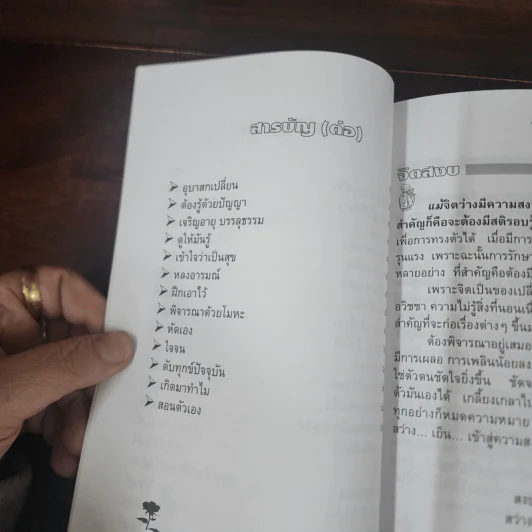 สารบัญ (ต่อ)
อุบาสกเปลี่ยน
ต้องรู้ด้วยปัญญา
เจริญอายุ บรรลุธรรม
ดูให้มันรู้
เข้าใจว่าเป็นสุข
หลงอารมณ์
ฝึกเอาไว้
พิจารณาด้วยโมหะ
หัดเอง
ใจจน
ดับทุกข์ปัจจุบัน
เกิดมาทำไม
สอนตัวเอง
จิตสงบ
แม้จิตว่างมีความสง
สำคัญก็คือจะต้องมีสติรอบรู้
เพื่อการทรงตัวได้ เมื่อมีการ
รุนแรง เพราะฉะนั้นการรักษา
หลายอย่าง ที่สำคัญคือต้องมี
เพราะจิตเป็นของเปลี่
อวิชชา ความไม่รู้สิ่งที่นอนเนื่
สำคัญที่จะก่อเรื่องต่างๆ ขึ้นม
ต้องพิจารณาอยู่เสมอ
มีการเผลอ การเพลินน้อยลง
ใช่ตัวตนชัดใจยิ่งขึ้น ชัดจ
ตัวมันเองได้ เกลี้ยงเกลาไป
ทุกอย่างก็หมดความหมาย
สว่าง... เย็น... เข้าสู่ความส
สงบ
สว่าง